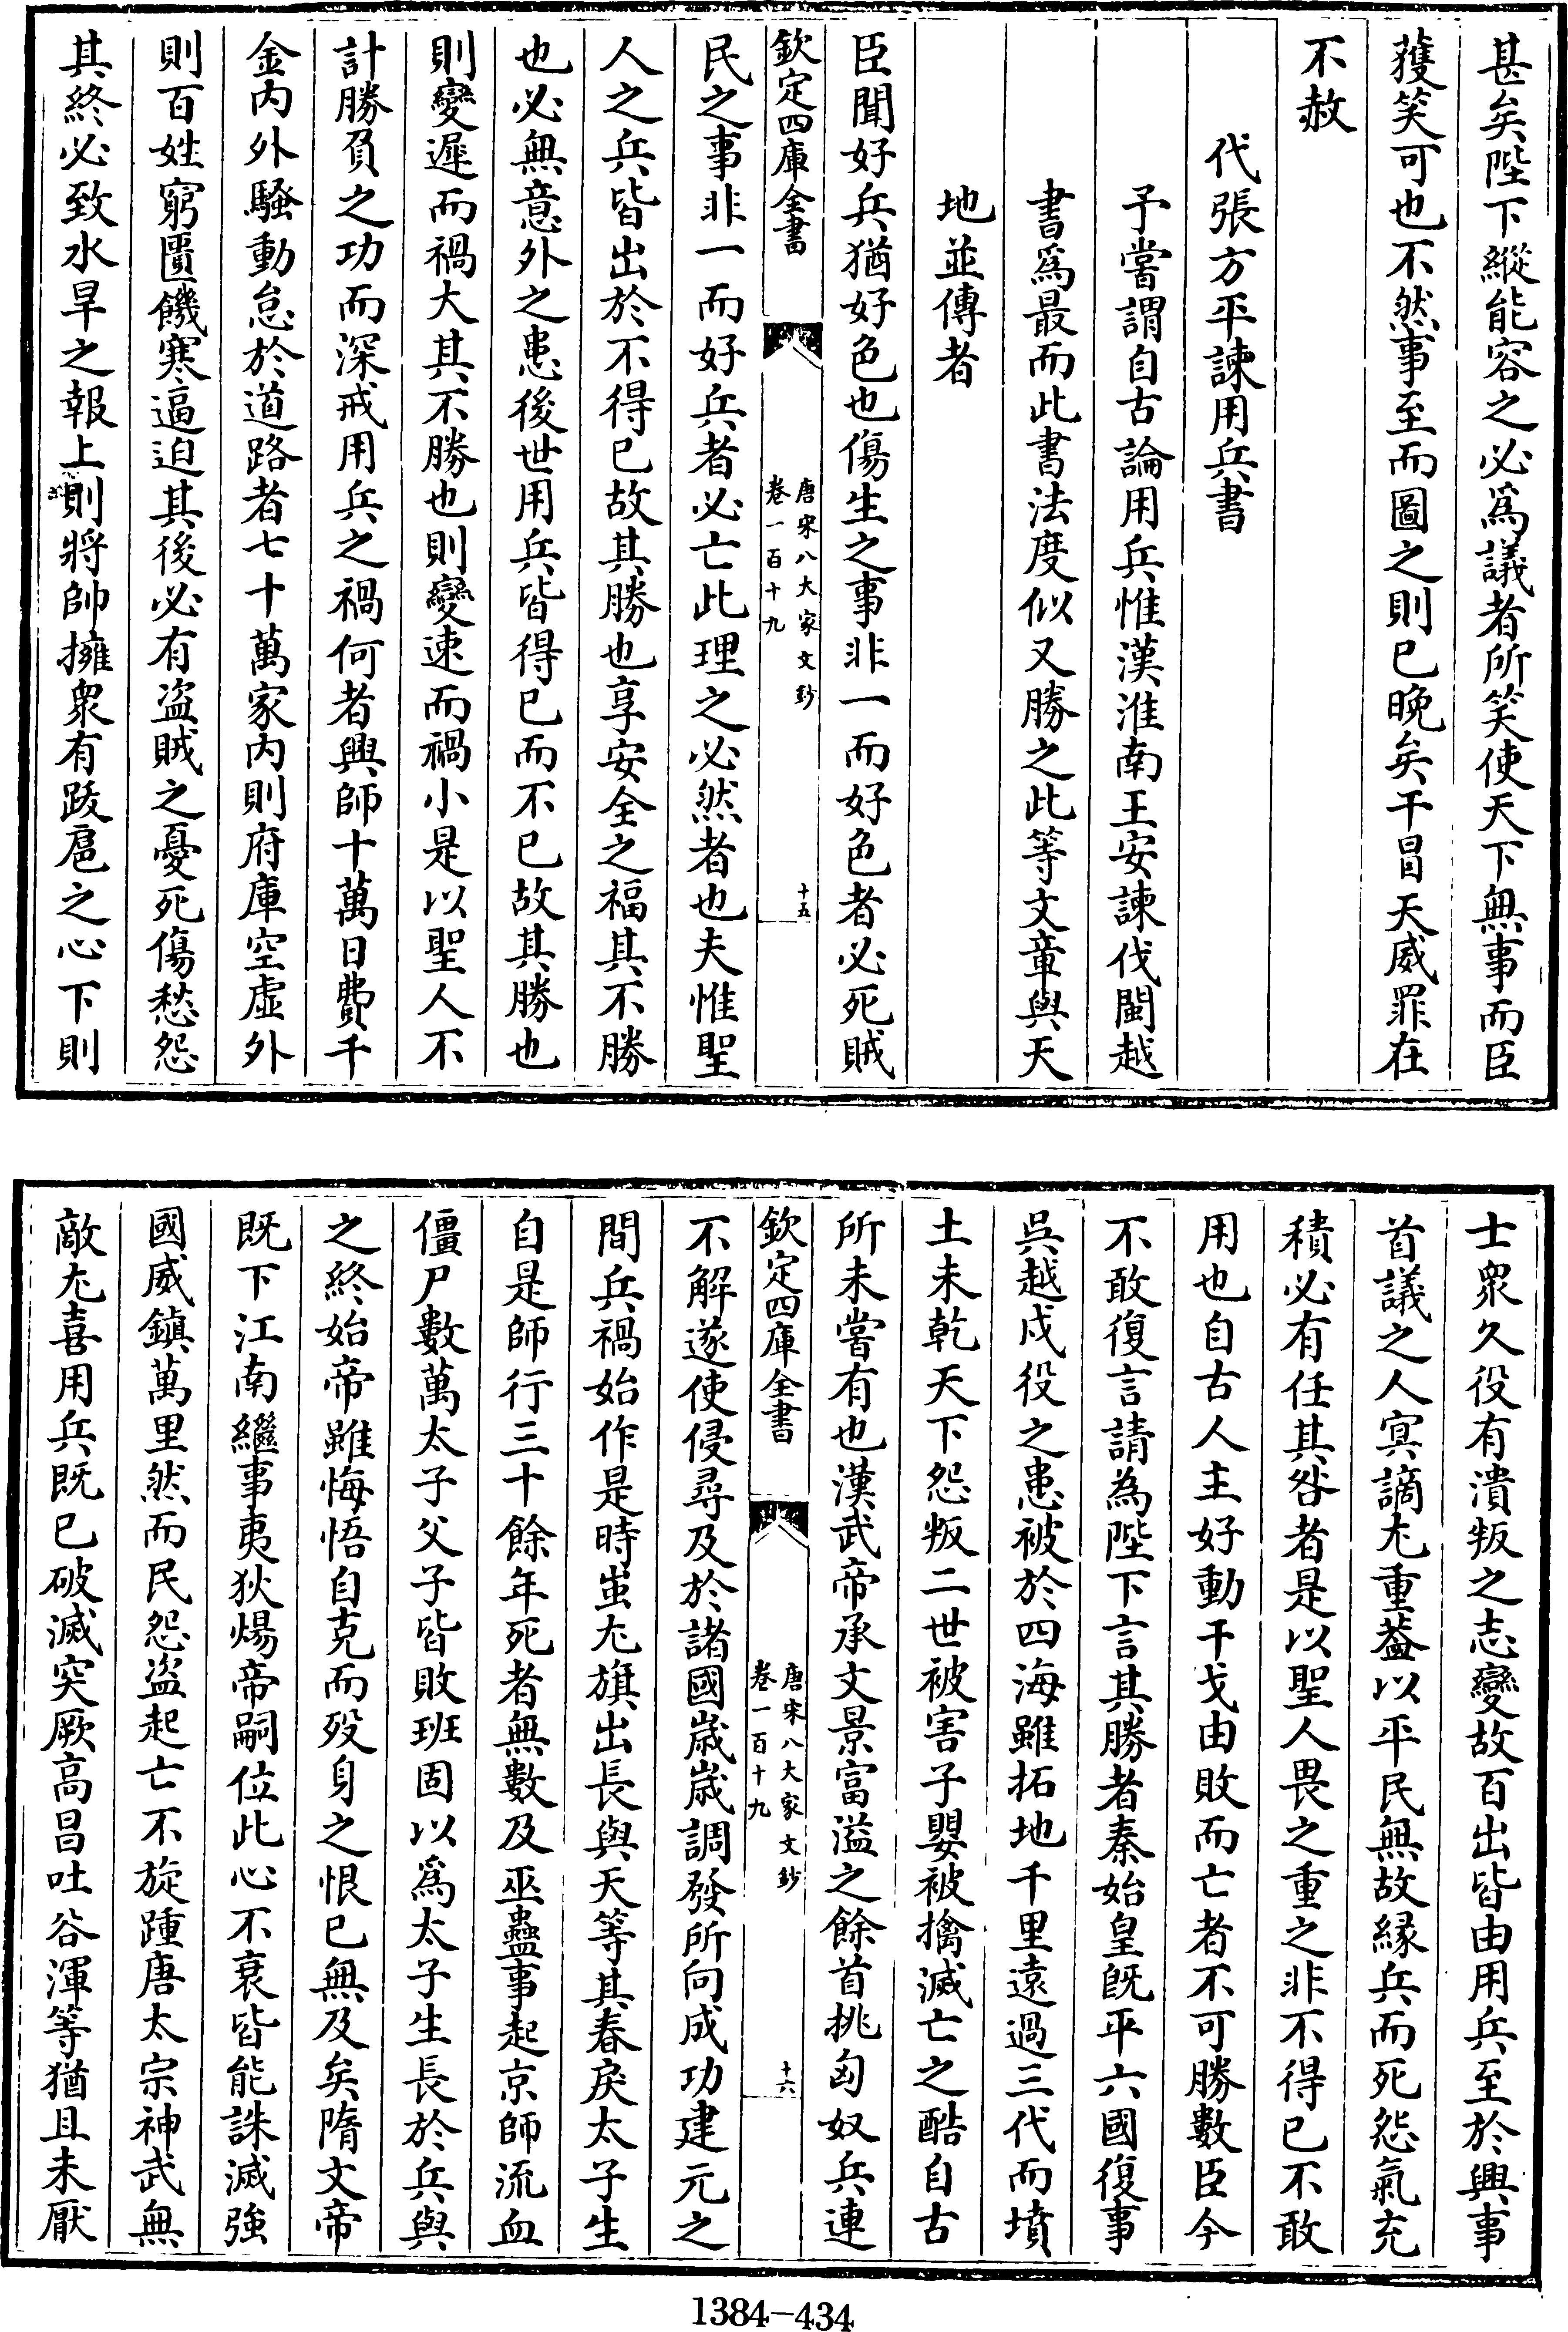 甚矣陛下縱能容之必爲議者所笑使天下無事而臣
獲笑可也不然事至而圖之則已晚矣干冒天威罪在
不赦
代張方平諫用兵書
予嘗謂自古論用兵惟漢淮南王安諫伐閩越
書爲最而此書法度似又勝之此等文章與天
地並傳者
臣聞好兵猶好色也傷生之事非一而好色者必死賊
欽定四庫全書
唐宋八大家文鈔
卷一百十九
十五
民之事非一而好兵者必亡此理之必然者也夫惟聖
人之兵皆出於不得已故其勝也享安全之福其不勝
也必無意外之患後世用兵皆得已而不已故其勝也
則變遲而禍大其不勝也則變速而禍小是以聖人不
計勝負之功而深戒用兵之禍何者興師十萬日費千
金内外騷動怠於道路者七十萬家内則府庫空虛外
則百姓窮匱饑寒逼迫其後必有盜賊之憂死傷愁怨
其終必致水旱之報上則將帥擁衆有跋扈之心下則
士衆久役有潰叛之志變故百出皆由用兵至於興事
首議之人冥謫尤重葢以平民無故緣兵而死怨氣充
積必有任其咎者是以聖人畏之重之非不得已不敢
用也自古人主好動干戈由敗而亡者不可勝數臣今
不敢復言請為陛下言其勝者秦始皇既平六國復事
吳越戍役之患被於四海雖拓地千里遠過三代而墳
土未乾天下怨叛二世被害子嬰被擒滅亡之酷自古
所未嘗有也漢武帝承文景富溢之餘首挑匈奴兵連
欽定四庫全書
唐宋八大家文鈔
卷一百十九
十六
不解遂使侵尋及於諸國嵗嵗調發所向成功建元之
間兵禍始作是時蚩尤旗出長與天等其春戾太子生
自是師行三十餘年死者無數及巫蠱事起京師流血
僵尸數萬太子父子皆敗班固以爲太子生長於兵與
之終始帝雖悔悟自克而歿身之恨已無及矣隋文帝
既下江南繼事夷狄煬帝嗣位此心不衰皆能誅滅強
國威鎮萬里然而民怨盜起亡不旋踵唐太宗神武無
敵尤喜用兵既已破滅突厥高昌吐谷渾等猶且未厭
1384-434